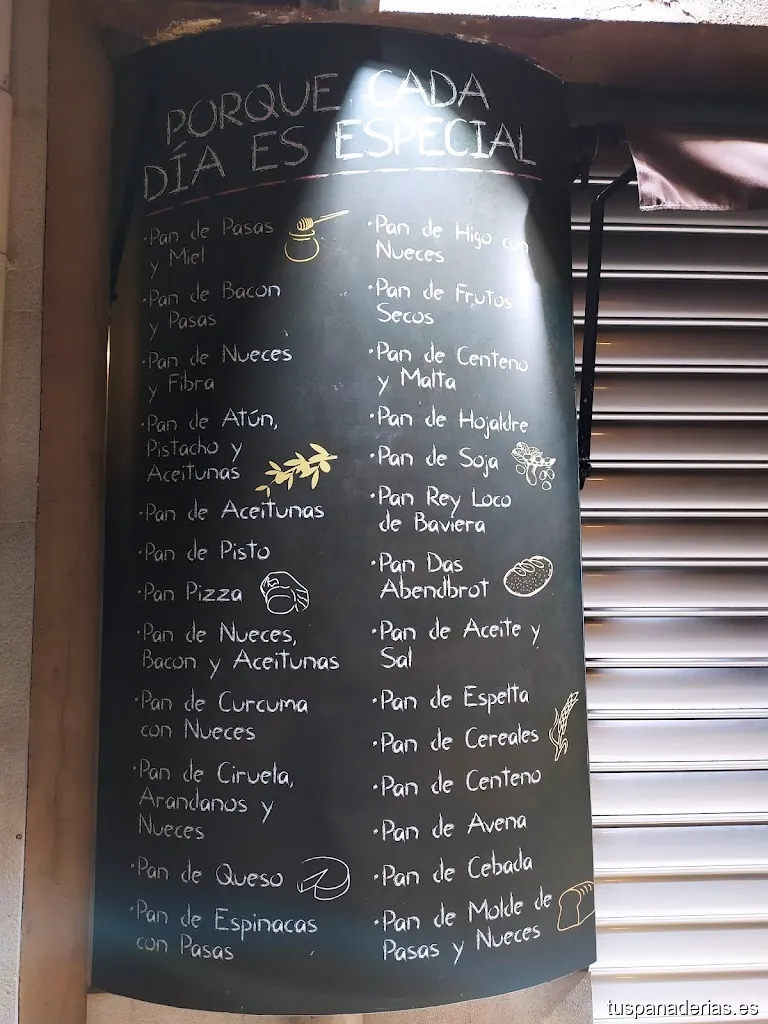 PORQUE CADA
DÍA ES ESPECIAL
·Pan de Pasas
y Miel
·Pan de Bacon
y Pasas
·Pan de Nueces
y Fibra
·Pan de Atún,
Pistacho y
Aceitunas
·Pan de Aceitunas
·Pan de Pisto
·Pan Pizza
·Pan de Nueces,
Bacon y Aceitunas
·Pan de Curcuma
con Nueces
·Pan de Ciruela,
Arandanos y
Nueces
·Pan de Queso
·Pan de Espinacas
con Pasas
·Pan de Higo con
Nueces
·Pan de Frutos
Secos
·Pan de Centeno
y Malta
·Pan de Hojaldre
·Pan de Soja
·Pan Rey Loco
de Baviera
·Pan Das
Abendbrot
·Pan de Aceite y
Sal
·Pan de Espelta
·Pan de Cereales
·Pan de Centeno
·Pan de Avena
·Pan de Cebada
·Pan de Molde de
Pasas y Nueces
tuspanaderias.es